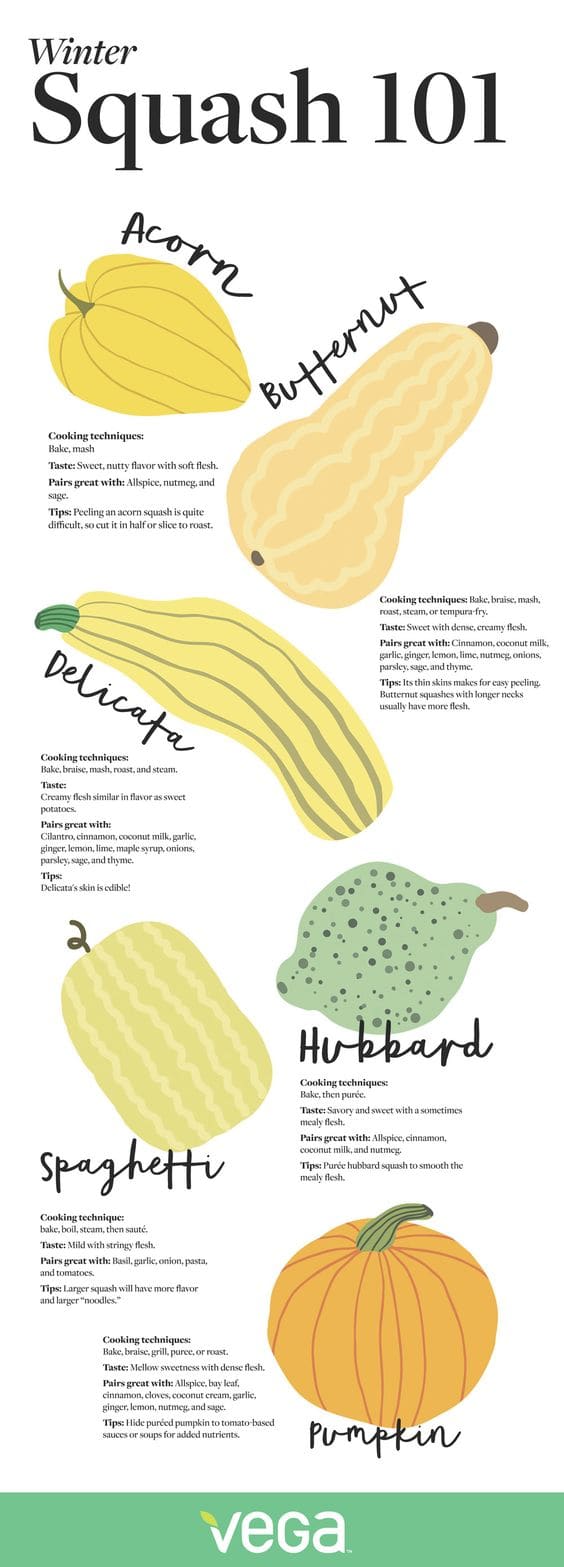 Winter
Squash 101
Acorn
Cooking techniques:
Bake, mash
Taste: Sweet, nutty flavor with soft flesh.
Pairs great with: Allspice, nutmeg, and
sage.
Tips: Peeling an acorn squash is quite
difficult, so cut it in half or slice to roast.
Butternut
Cooking techniques: Bake, braise, mash,
roast, steam, or tempura-fry.
Taste: Sweet with dense, creamy flesh.
Pairs great with: Cinnamon, coconut milk,
garlic, ginger, lemon, lime, nutmeg, onions,
parsley, sage, and thyme.
Tips: Its thin skins makes for easy peeling.
Butternut squashes with longer necks
usually have more flesh.
Delicata
Cooking techniques:
Bake, braise, mash, roast, and steam.
Taste:
Creamy flesh similar in flavor as sweet
potatoes.
Pairs great with:
Cilantro, cinnamon, coconut milk, garlic,
ginger, lemon, lime, maple syrup, onions,
parsley, sage, and thyme.
Tips:
Delicata's skin is edible!
Hubbard
Cooking techniques:
Bake, then purée.
Taste: Savory and sweet with a sometimes
mealy flesh.
Pairs great with: Allspice, cinnamon,
coconut milk, and nutmeg.
Tips: Purée hubbard squash to smooth the
mealy flesh.
Spaghetti
Cooking technique:
bake, boil, steam, then sauté.
Taste: Mild with stringy flesh.
Pairs great with: Basil, garlic, onion, pasta,
and tomatoes.
Tips: Larger squash will have more flavor
and larger “noodles.”
Cooking techniques:
Bake, braise, grill, puree, or roast.
Taste: Mellow sweetness with dense flesh.
Pairs great with: Allspice, bay leaf,
cinnamon, cloves, coconut cream, garlic,
ginger, lemon, nutmeg, and sage.
Tips: Hide puréed pumpkin to tomato-based
sauces or soups for added nutrients.
Pumpkin
vega™